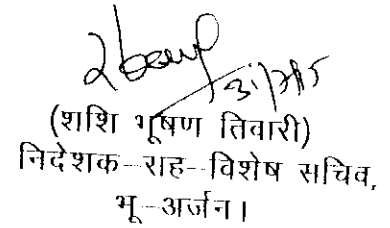 (शशि भूषण तिवारी)
निदेशक-सह-विशेष सचिव,
भू-अर्जन।